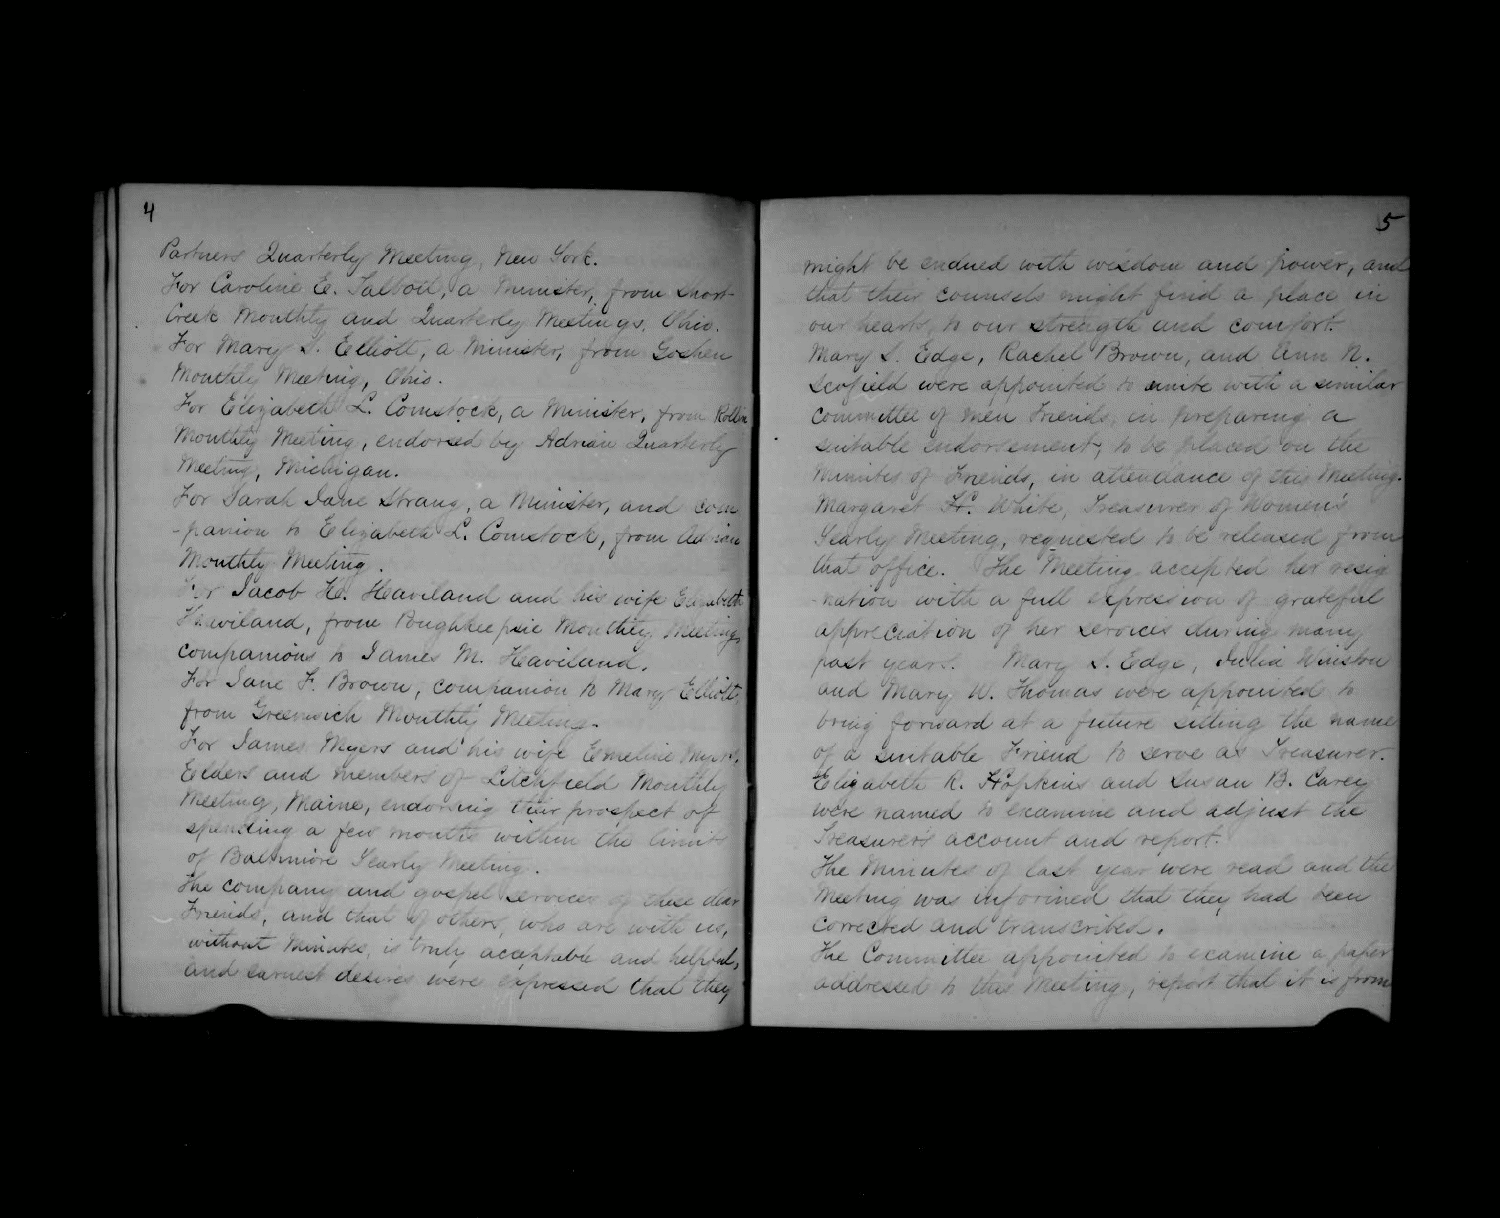 4
Partners Quarterly Meeting, New York.
For Caroline E. Talbott, a Minister, from Short-
Creek Monthly and Quarterly Meetings, Ohio.
For Mary S. Elliott, a Minister, from Goshen
Monthly Meeting, Ohio.
For Elizabeth L. Comstock, a Minister, from Rollin
Monthly Meeting, endorsed by Adrian Quarterly
Meeting, Michigan.
For Sarah Jane Strang, a Minister, and com
-panion to Elizabeth L. Comstock, from Adrian
Monthly Meeting.
For Jacob H. Haviland and his wife Elizabeth
Haviland, from Poughkeepsie Monthly Meeting,
companions to James M. Haviland.
For Jane F. Brown, companion to Mary Elliott,
from Greenwich Monthly Meeting.
For James Myers and his wife Emeline Myers,
Elders and members of Litchfield Monthly
Meeting, Maine, endorsing their prospect of
spending a few months within the limits
of Baltimore Yearly Meeting.
The company and gospel services of these dear
Friends, and that of others, who are with us,
without Minutes, is truly acceptable and helpful,
and earnest desires were expressed that they
5
might be endued with wisdom and power, and
that their counsels might find a place in
our hearts, to our strength and comfort.
Mary S. Edge, Rachel Brown, and Ann N.
Scofield were appointed to unite with a similar
committee of men Friends, in preparing a
suitable endorsement, to be placed on the
Minutes of Friends, in attendance of this Meeting.
Margaret H. White, Treasurer of Women's
Yearly Meeting, requested to be released from
that office. The Meeting accepted her resig
-nation with a full expression of grateful
appreciation of her services during many
past years. Mary S. Edge, Julia Winston
and Mary W. Thomas were appointed to
bring forward at a future sitting the name
of a suitable Friend to serve as Treasurer.
Elizabeth R. Hopkins and Susan B. Carey
were named to examine and adjust the
Treasurer's account and report.
The Minutes of last year were read and the
Meeting was informed that they had been
corrected and transcribed.
The Committee appointed to examine a paper
addressed to this Meeting, report that it is from